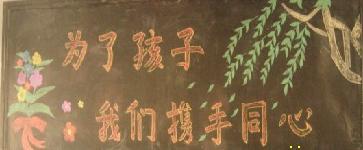 为了孩子
我们携手同心